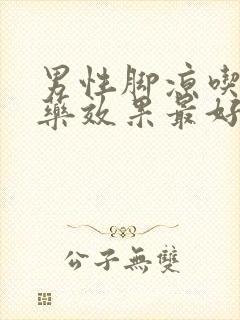 男性脚凉喫
藥效果最好
公子無雙